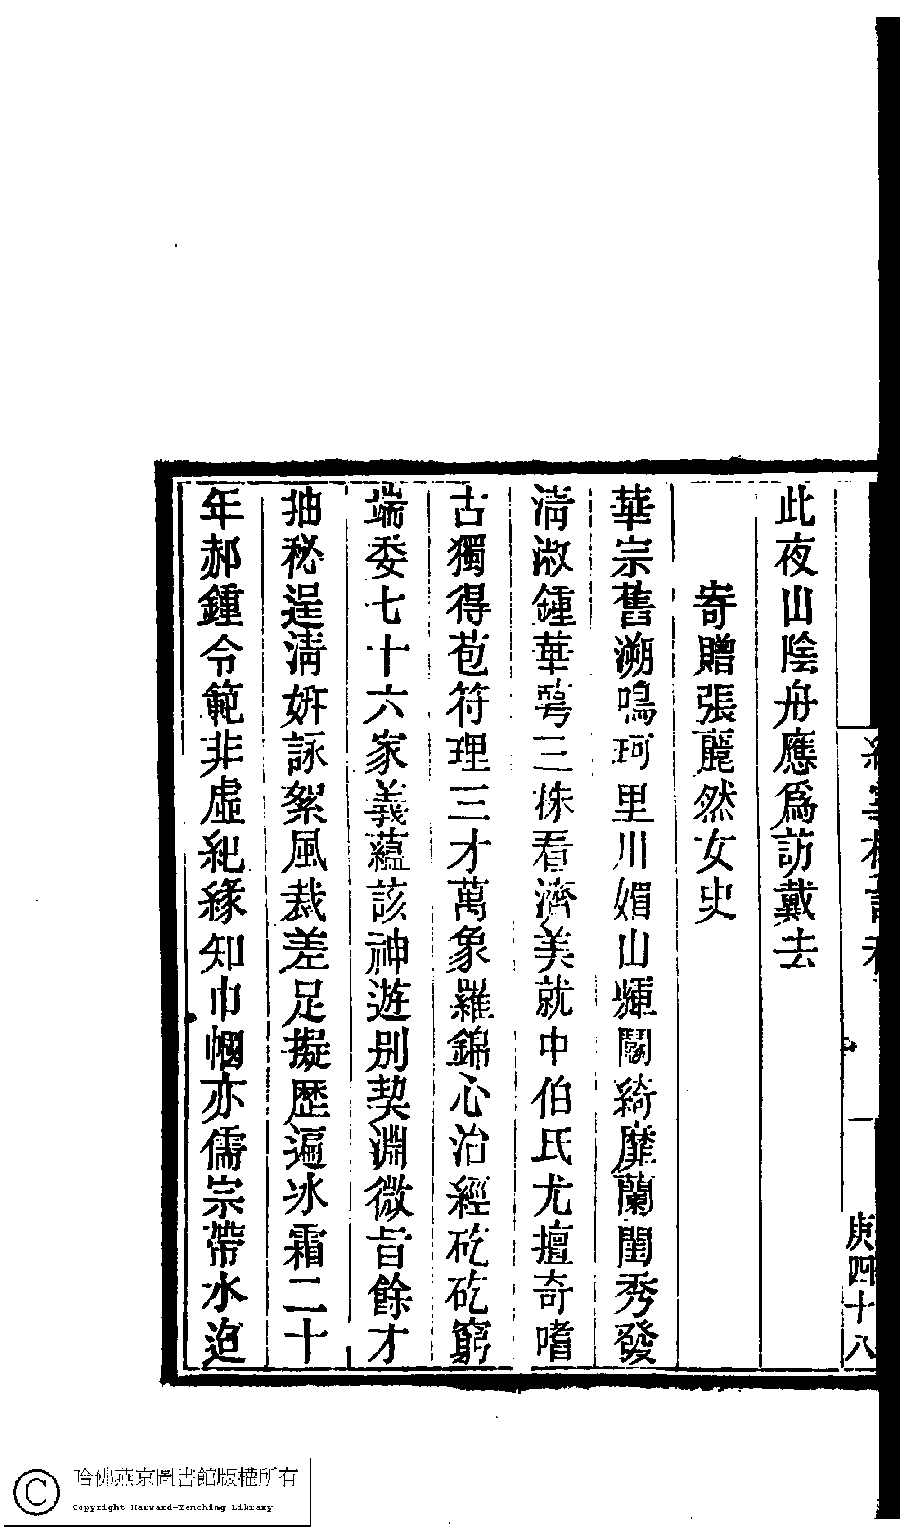 庚四十八
此夜山陰舟應爲訪戴去
寄贈張麗然女史
華宗舊溯鳴珂里川媚山輝闢綺靡蘭閨秀發
淸淑鍾華萼三株看濟美就中伯氏尤擅奇嗜
古獨得苞符理三才萬象羅錦心治經矻矻窮
端委七十六家義蘊該神遊別契淵微旨餘才
抽秘逞淸妍詠絮風裁差足擬歷遍冰霜二十
年郝鍾令範非虛紀緣知巾幗亦儒宗帶水迢
哈佛燕京圖書館版權所有
Copyright Harvard-Yenching Library